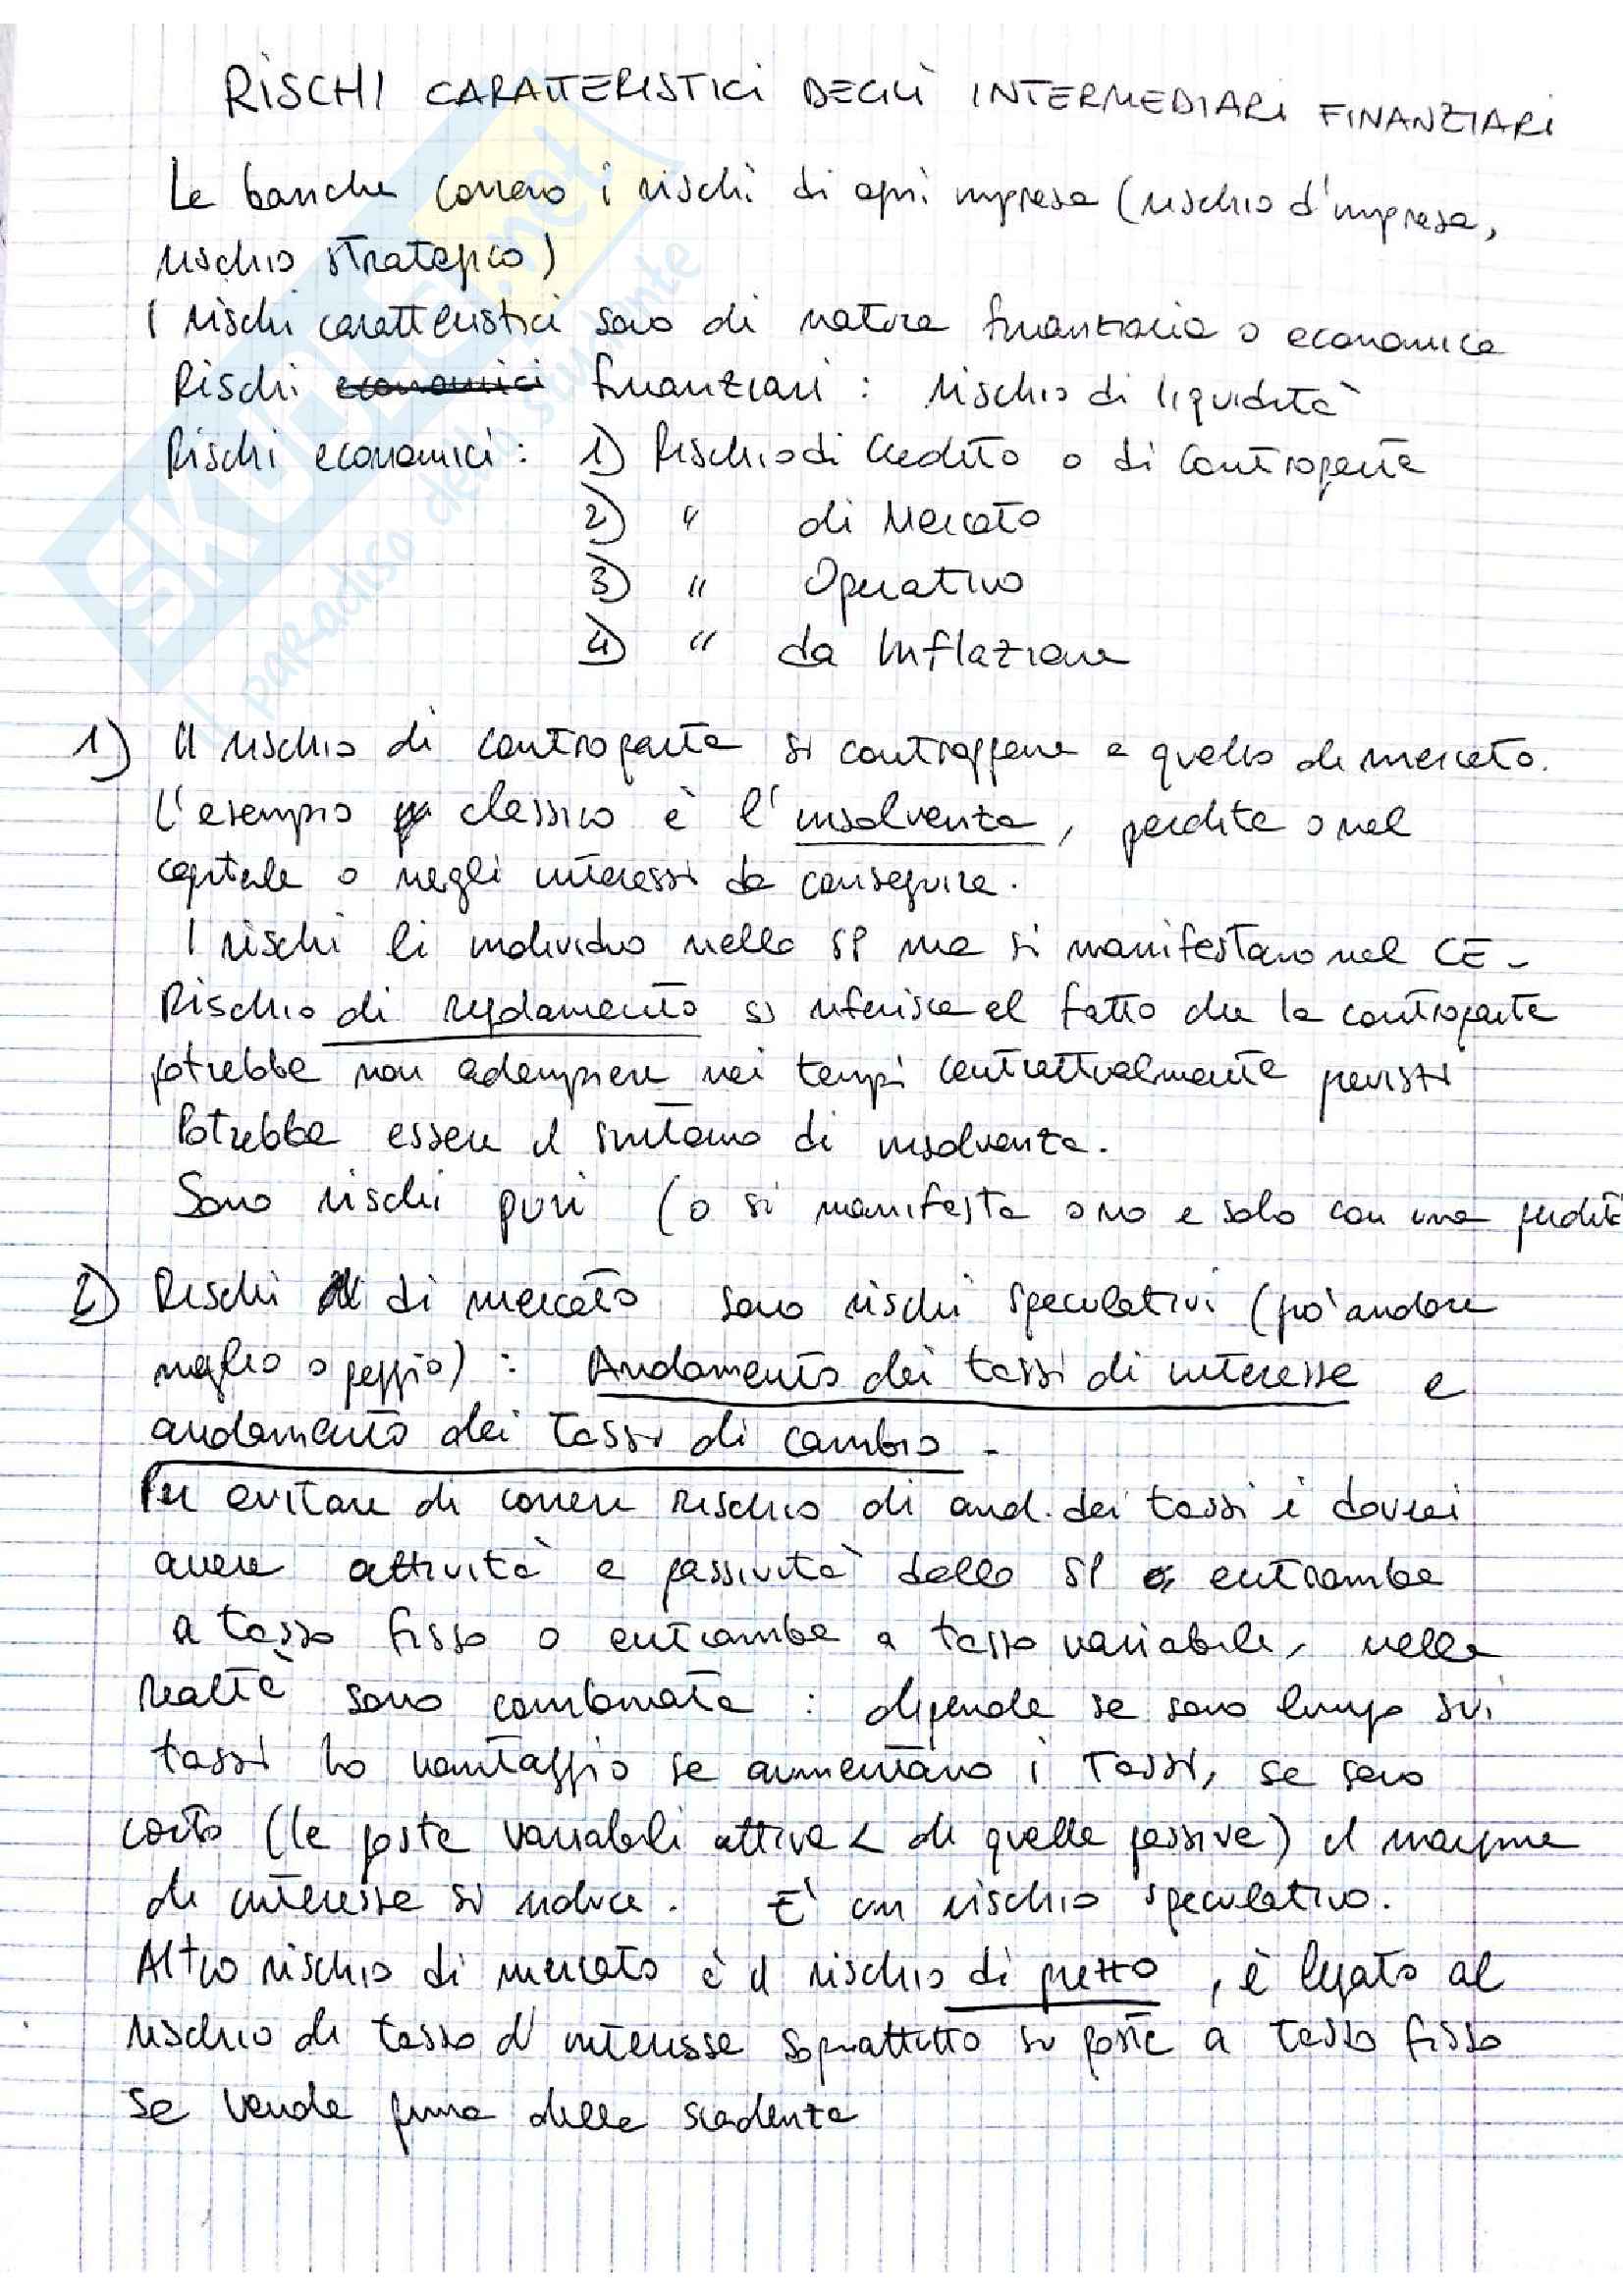 RISCHI CARATTERISTICI DEGLI INTERMEDIARI FINANZIARI
Le banche corrono i rischi di ogni impresa (rischio d'impresa,
rischio strategico)
I rischi caratteristici sono di natura finanziaria o economica
Rischi economici finanziari : rischio di liquidità
Rischi economici : 1) Rischio di Credito o di Controparte
2) " di Mercato
3) " Operativo
4) " da Inflazione
1) Il rischio di controparte si contrappone a quello di mercato.
L'esempio classico è l'insolvenza, perdite o nel
capitale o negli interessi da conseguire.
I rischi li individuo nello SP ma si manifestano nel CE -
Rischio di regolamento si riferisce al fatto che la controparte
potrebbe non adempiere nei tempi contrattualmente previsti
Potrebbe essere il sintomo di insolvenza.
Sono rischi puri (o si manifesta o no e solo con una perdita
2) Rischi di mercato sono rischi speculativi (può andare
meglio o peggio) : Andamento dei tassi di interesse e
andamento dei tassi di cambio -
Per evitare di correre rischio di and. dei tassi i dovrei
avere attività e passività dello SP entrambe
a tasso fisso o entrambe a tasso variabile, nella
realtà sono combinate : dipende se sono lungo sui
tassi ho vantaggio se aumentano i tassi, se sono
corto (le poste variabili attive < di quelle passive) il margine
di interesse si riduce. E' un rischio speculativo.
Altro rischio di mercato è il rischio di prezzo, è legato al
rischio di tasso d'interesse soprattutto su poste a tasso fisso
se vende prima della scadenza
SKUOLA.net
il paradiso dello studente